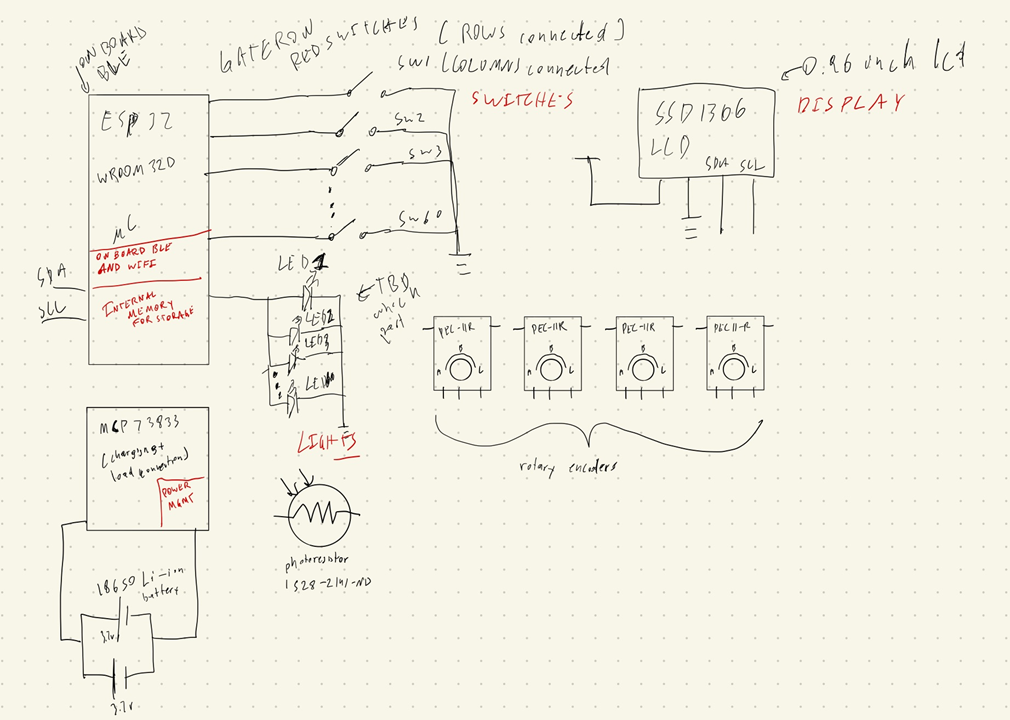 ON BOARD
BLE
GATERON
RED SWITCHES
[ ROWS connected ]
SW1 (COLUMNS connected
SWITCHES
SW2
SW3
SW60
ESP 32
WROOM 32D
μC
ON BOARD BLE
AND WIFI
INTERNAL
MEMORY
FOR STORAGE
SDA
SCL
0.96 inch lcd
DISPLAY
SSD1306
LCD
SDA SCL
LED 1
LED2
LED3
TBD
which
part
LIGHTS
PEC-11R
PEC-11R
PEC-11R
PEC11-R
A B C
A B C
A B C
A B C
rotary encoders
MCP 73833
(charging +
POWER
MGMT
photoresistor
1528-2141-ND
18650 Li-ion
battery
3.7v
3.7v